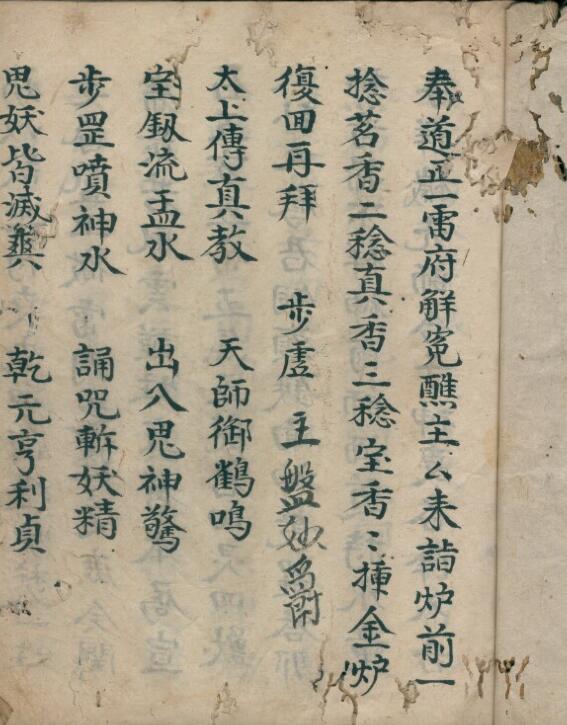 奉道正一雷府解冤醮主厶来詣炉前一
捻茗香二稔真香三稔宝香〻揷金炉
復回再拜 步虚 主盤妙爵
太上傳真教 天師御鶴鳴
宝釼流盂水 出入鬼神驚
步罡噴神水 誦咒斬妖精
鬼妖皆滅 乾元亨利貞